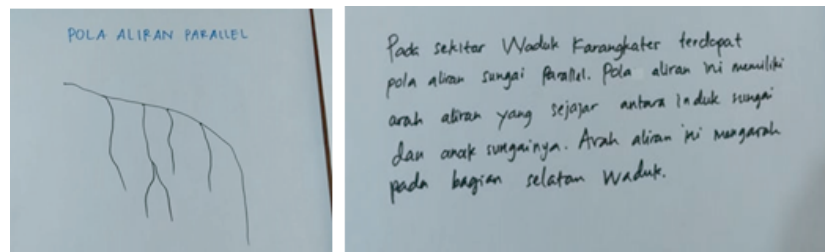 POLA ALIRAN PARALLEL
Pada sekitar Waduk Karangkates terdapat
pola aliran sungai Parallel. Pola aliran ini memiliki
arah aliran yang sejajar antara induk sungai
dan anak sungainya. Arah aliran ini mengarah
pada bagian selatan Waduk.